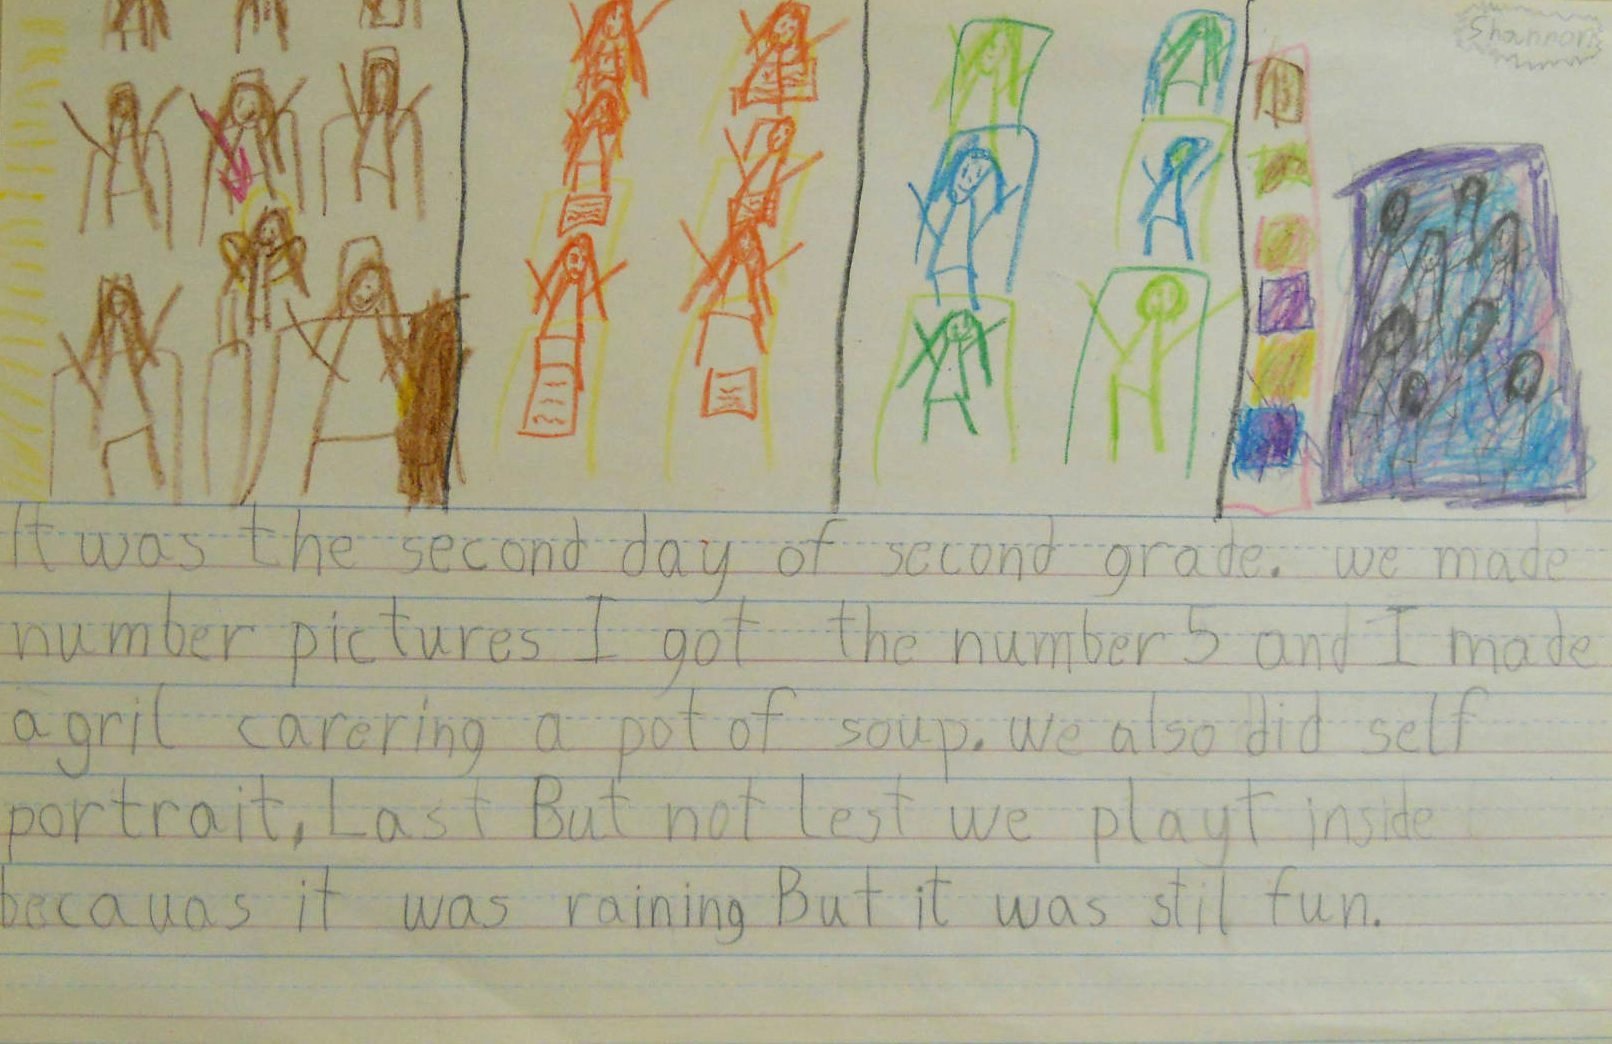 Shannon
It was the second day of second grade. we made
number pictures I got the number 5 and I made
a gril carering a pot of soup. we also did self
portrait, Last But not lest we playt inside
becauas it was raining But it was stil fun.